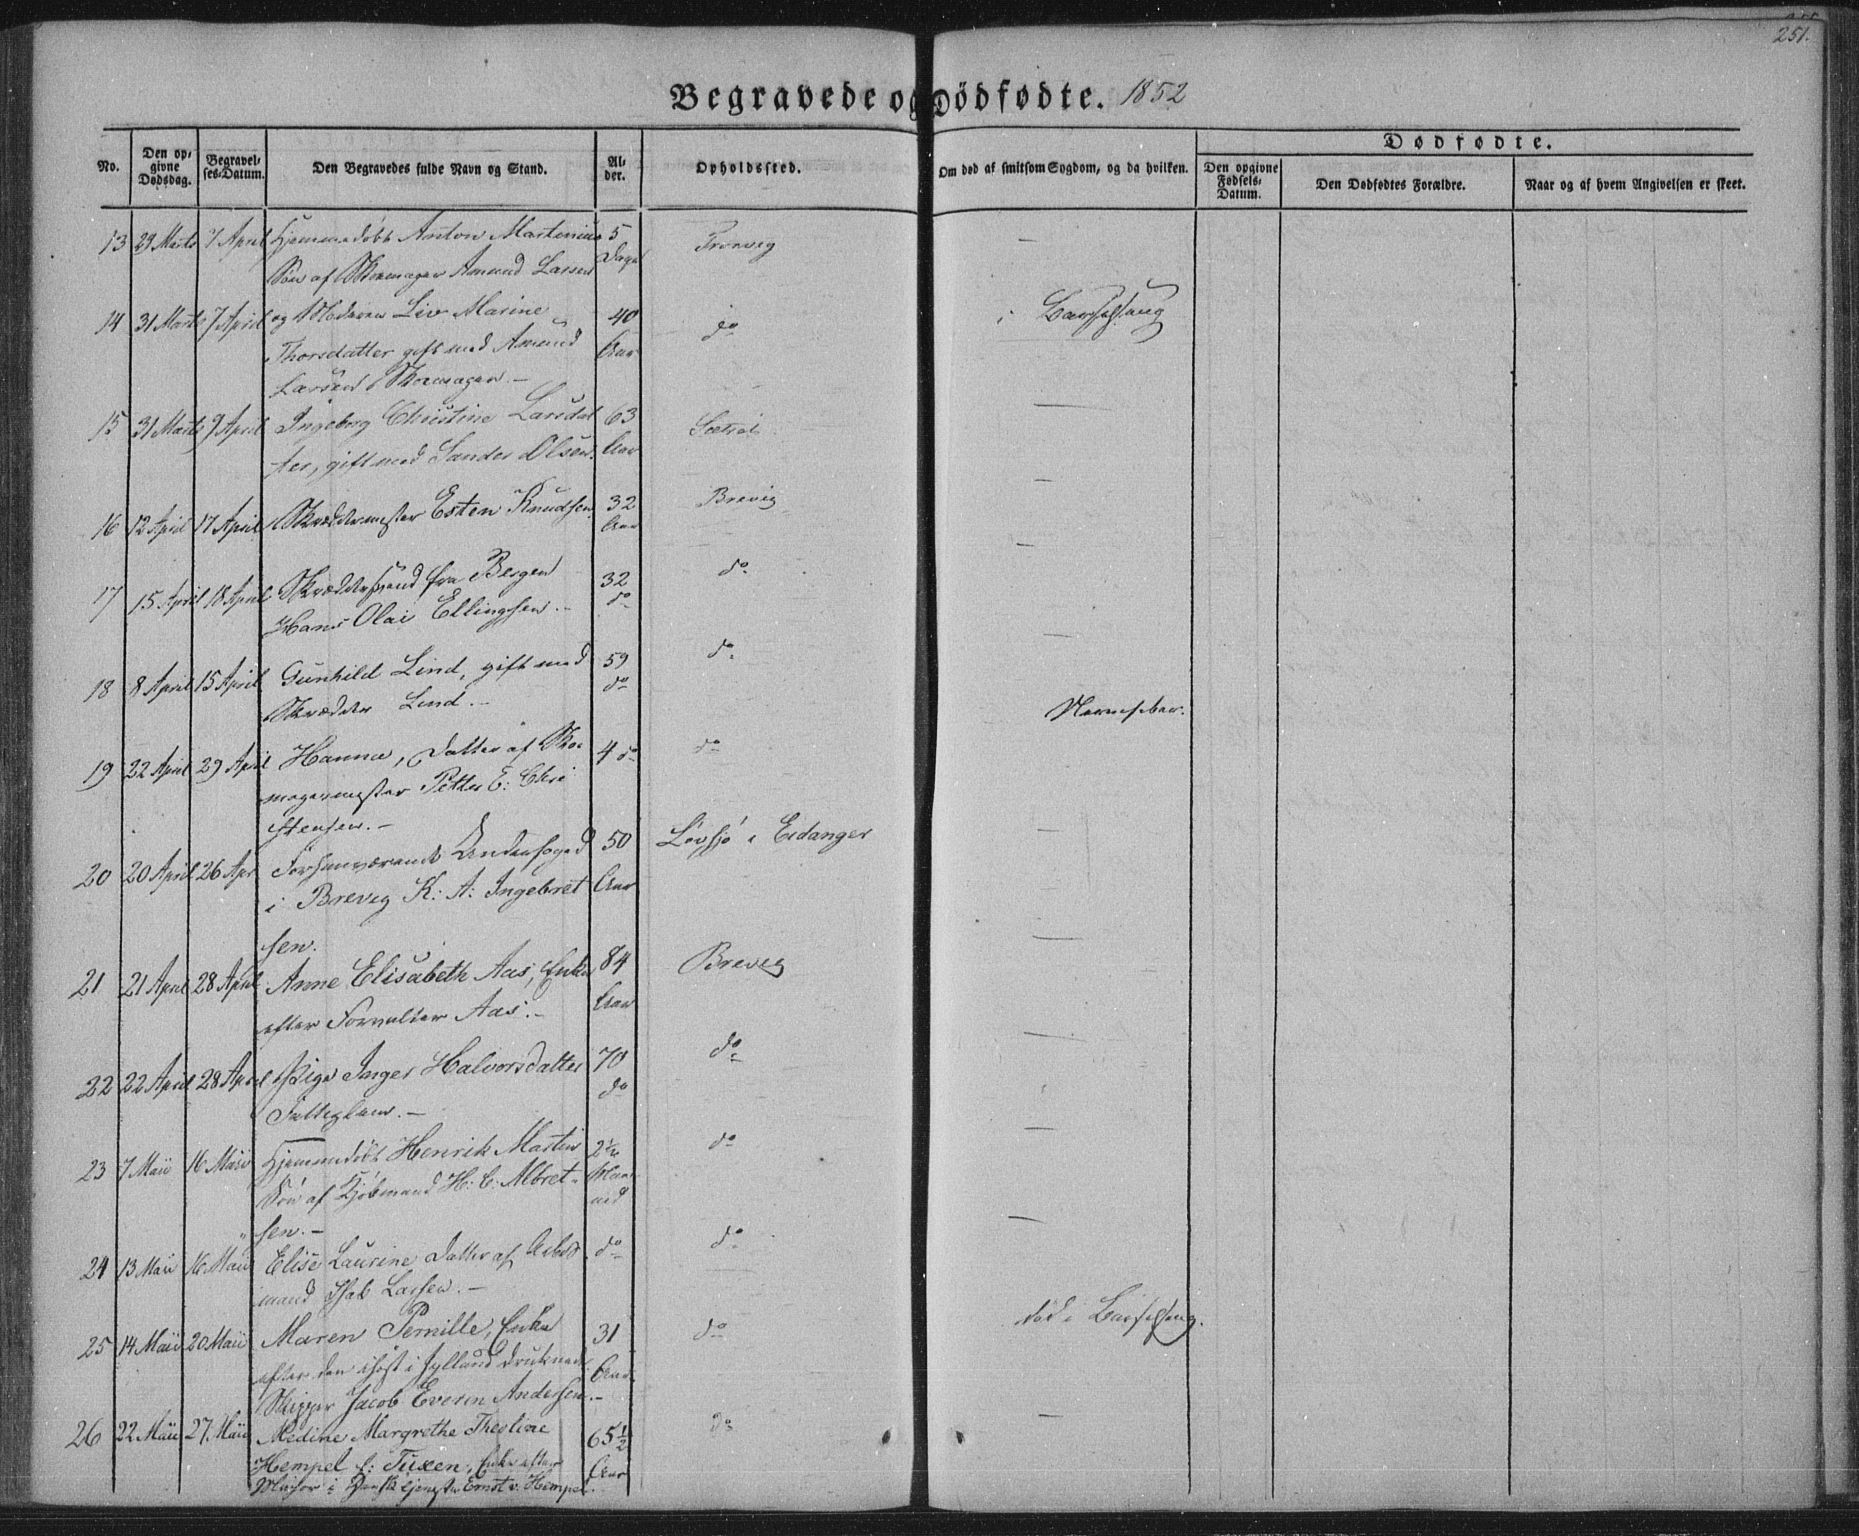 251.
Begravede og Dödfödte. 1852
No.
Den opgivne Dødsdag.
Begravelses-Datum.
Den Begravedes fulde Navn og Stand.
Alder.
Opholdssted.
Om død af smitsom Sygdom, og da hvilken.
Dødfødte.
Den opgivne Fødsels-Datum.
Den Dødfødtes Forældre.
Naar og af hvem Angivelsen er skeet.
13 29 Marts 7 April Hjemmedöbt Anton Martinius 5 —
Sön af Skomager Amund Larsen Dage
14 31 Marts 7 April og Moderen Liv Marine 40 do i Barselseng
Thorsdatter gift med Amund Aar
Larsen Skomager. —
15 31 Marts 9 April Ingeborg Christine Larsdat 63 —
ter, gift med Sander Olsen. Aar
16 12 April 17 April Skræddermester Esten Knudsen 32 Brevig —
Aar
17 15 April 18 April Skræddersvend fra Bergen 32 do —
Hans Olai Ellingsen. — do
18 8 April 15 April Gunhild Lind, gift med 59 do —
Skrædder Lind. — do
19 22 April 29 April Hanna, Datter af Sko 4 do do
magermester Petter E: Chri
stensen. —
20 20 April 26 Apr Forhenværende Underfoged 50 Lövsjö i Eidanger —
i Brevig K: A: Ingebret Aar
sen.
21 21 April 28 April Anne Elisabeth Aas, Enke 84 Brevig —
efter Forvalter Aas. — Aar
22 22 April 28 April Pige Inger Halvorsdatter 70 do —
Fattiglem. — do
23 7 Maii 16 Maii Hjemmedöbt Henrik Martin 2½ do —
Sön af Kjöbmand H: C: Albret- Maa
sen. — ned
24 13 Maii 16 Maii Elise Laurine Datter af Arbeids do do —
mand Isak Larsen. —
25 14 Maii 20 Maii Maren Pernille, Enke 31 do död i Barselseng.
efter den i Höst i Jylland druknede Aar
Skipper Jacob Everin Andersen. —
26 22 Maii 27. Maii Medine Margrethe Theoline 65½ do —
Hempel f: Tuxen, Enke efter Aar
Major i Dansk Tjeneste Ernst v. Hempel.